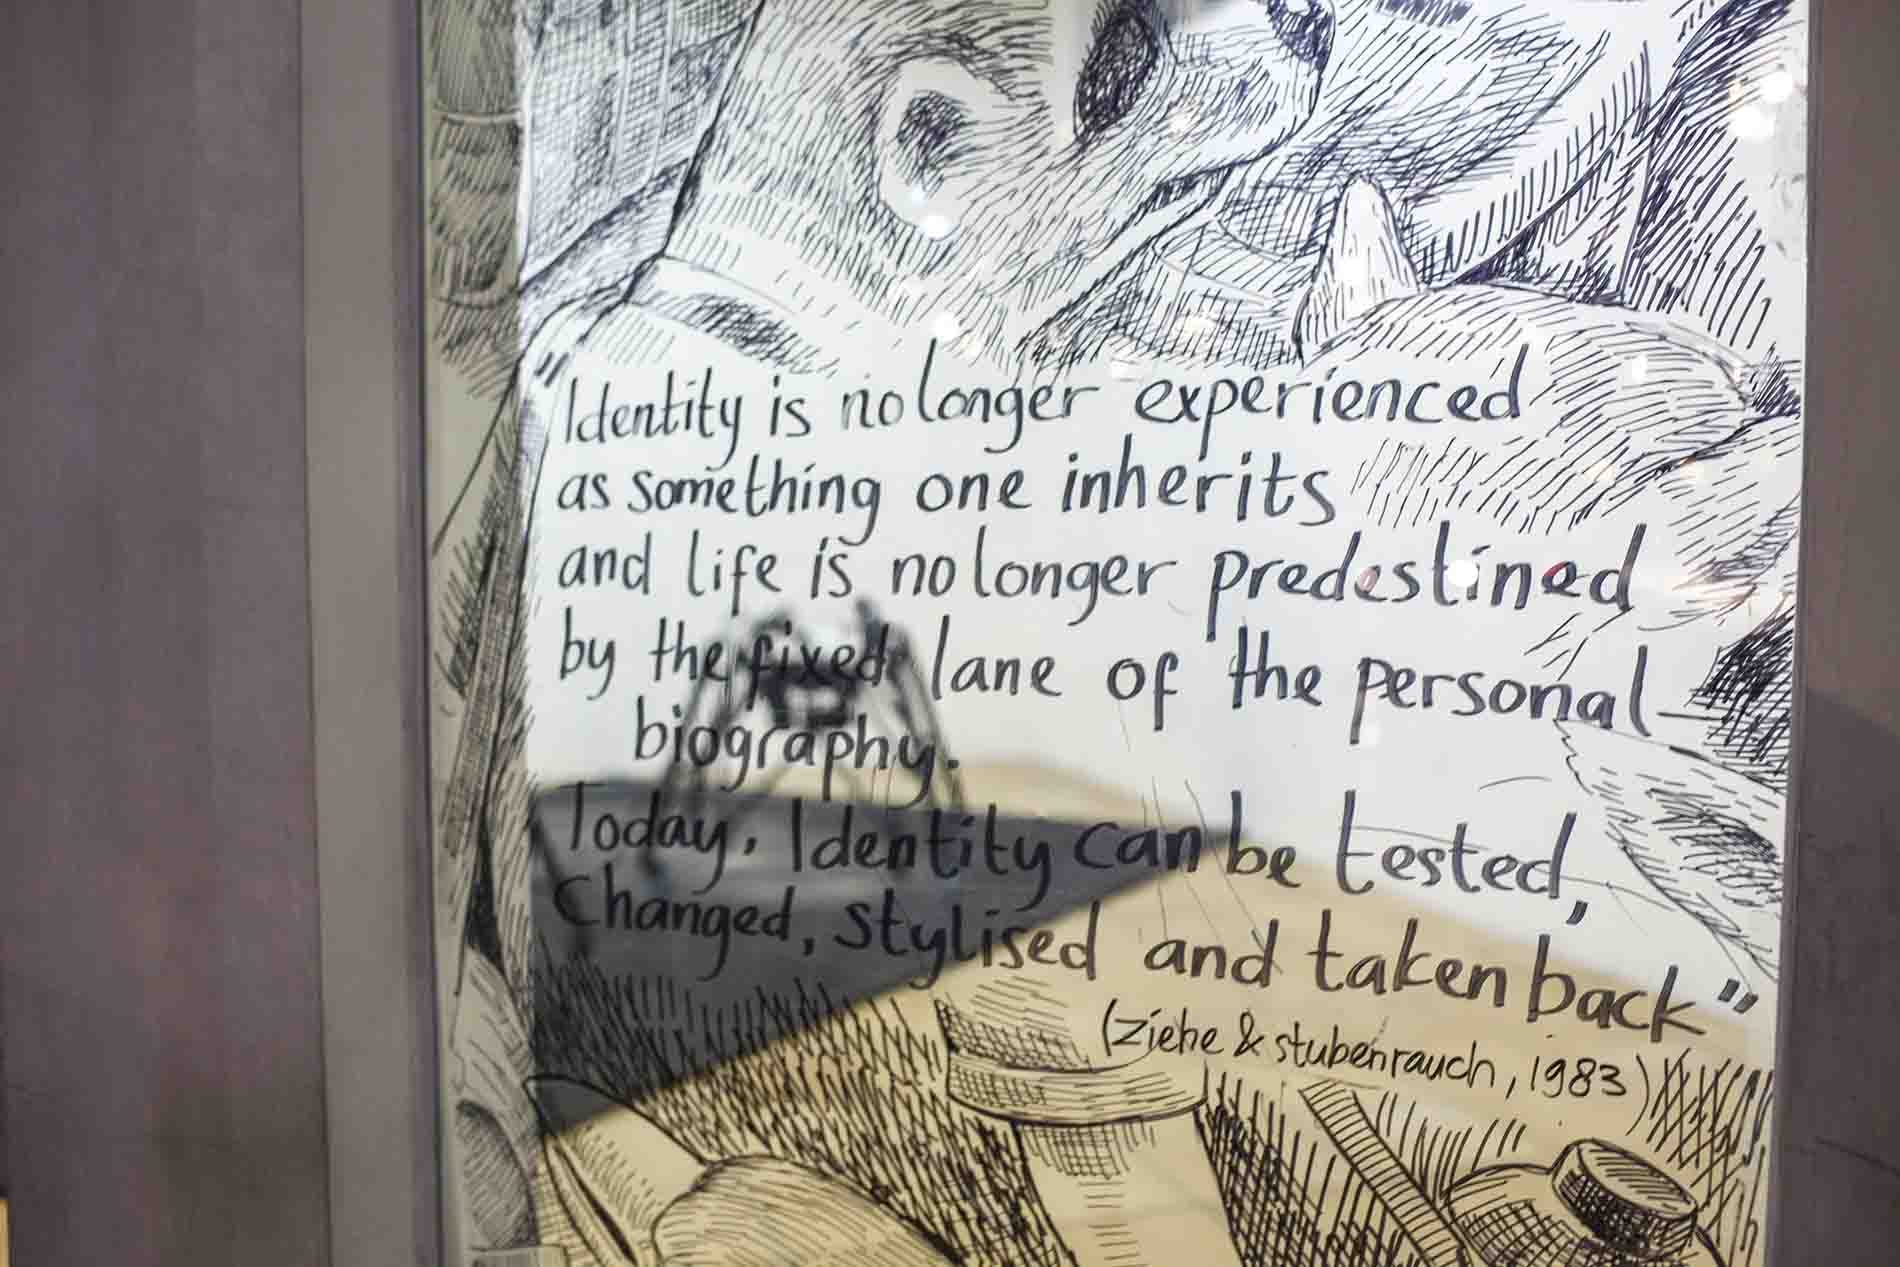 "Identity is no longer experienced
as something one inherits
and life is no longer predestined
by the fixed lane of the personal
biography.
Today, Identity can be tested,
Changed, stylised and taken back"
(ziehe & stubenrauch, 1983)